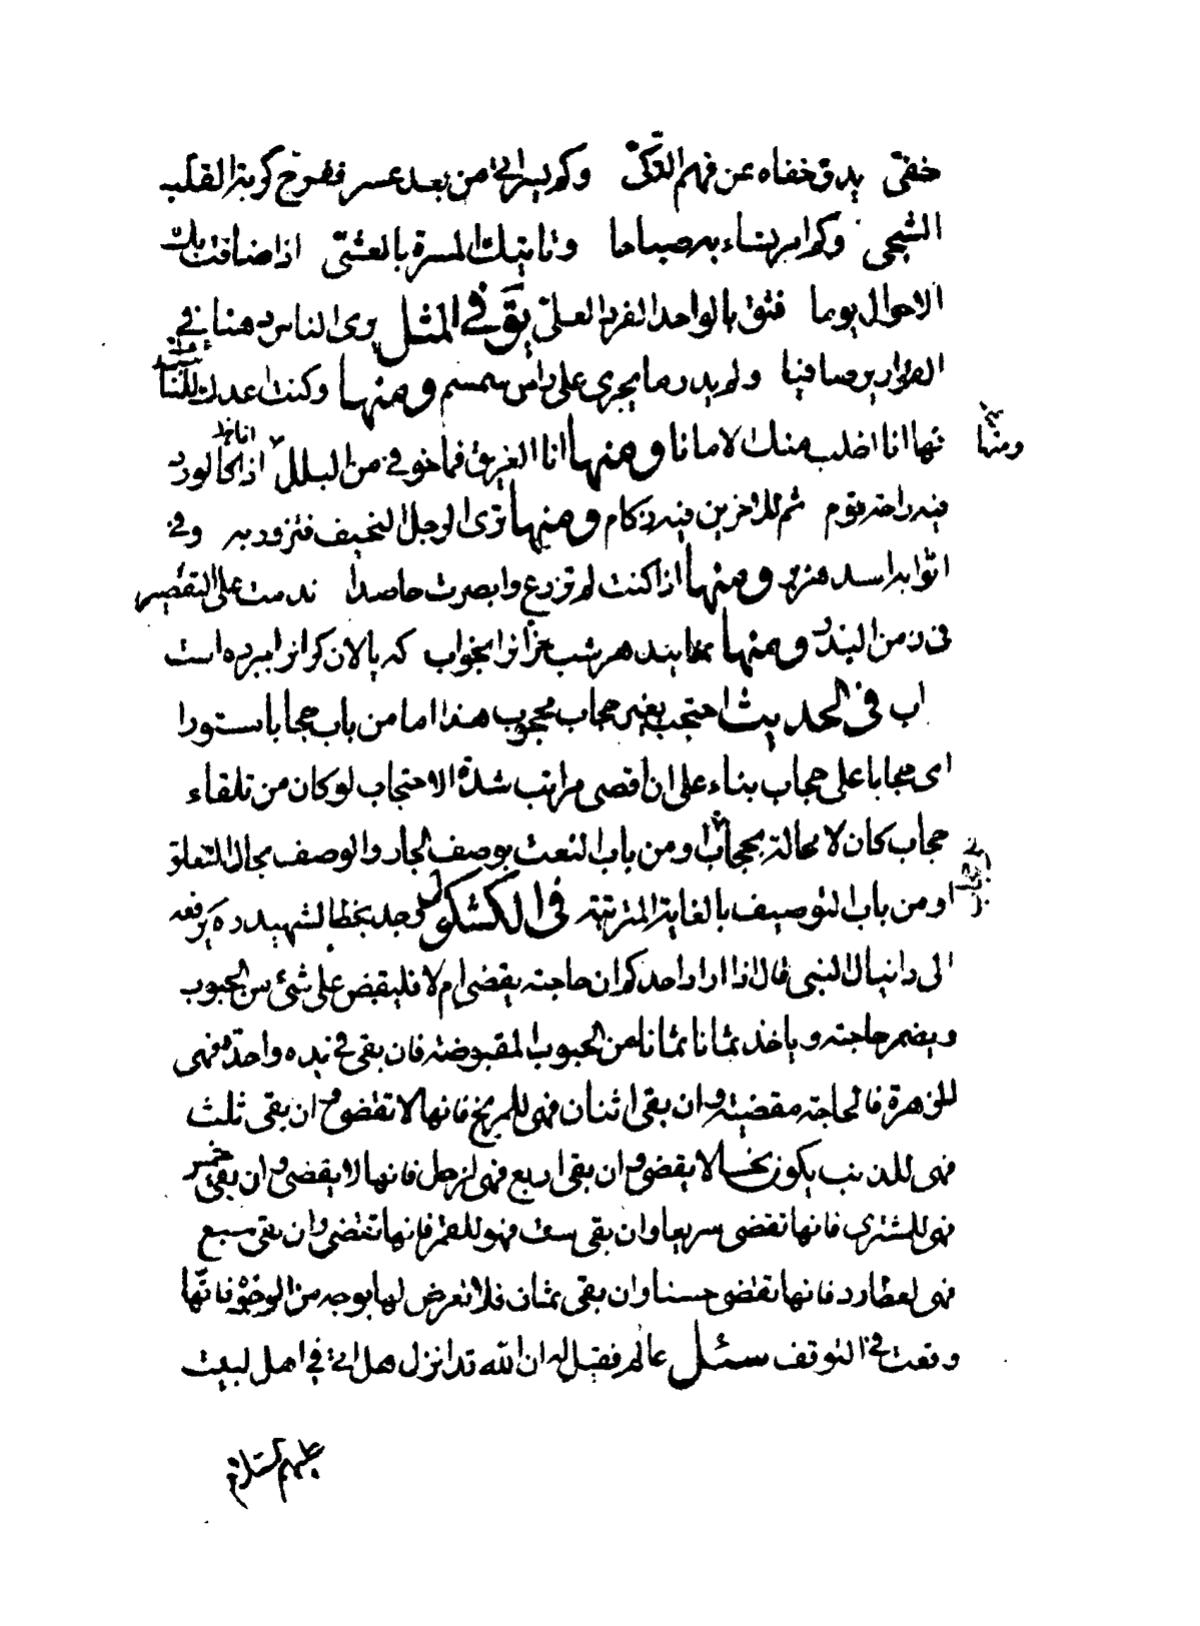 خفیّ یدق خفاه عن فهم الذکیّ وکم یسر اتی من بعد عسر ففرج کربة القلب
الشجی وکم امر تساء به صباحا وتاتیک المسرة بالعشیّ اذا ضاقت بک
الاحوال یوما فثق بالواحد الفرد العلیّ یق فی المثل یری الناس دهنا فی
القواریر صافیا ولم یدر ما یجری علی راس سمسم ومنها وکنت اعدک للنا
ئبات
ومنها
فها انا اطلب منک الامانا ومنها انا الغریق فما خوفی من البلل اذا کا الورد
فیه راحة قوم ثم للاخرین فیه زکام ومنها تری الرجل النحیف فتزدریه وفی
اثوابه اسد هزبر ومنها اذا کنت لم تزرع وابصرت حاصدا ندمت علی التقصیر
فی زمن البذر ومنها نمایند هر شب خرانرا بخواب که پالان کرانرا ببرده است
اب فی الحدیث احتجب بغیر حجاب محجوب هذا اما من باب حجابا مستورا
ای حجابا علی حجاب بناء علی ان اقصی مراتب شدة الاحتجاب لو کان من تلقاء
حجاب کان لا محالة بحجاب او من باب النعت بوصف الجار والوصف بحال المتعلق
او من باب التوصیف بالغایة المترتبة فی الکشکول وجد بخط الشهید ره یرفعه
الی دانیال النبی قال اذا اراد احدکم ان حاجته یقضی ام لا فلیقبض علی شیء من الحبوب
ویضمر حاجته ویاخذ ثمانا ثمانا من الحبوب المقبوضة فان بقی فی یده واحدة فهی
للزهرة فالحاجة مقضیة وان بقی اثنان فهی للمریخ فانها لا تقضی وان بقی ثلث
فهی للذنب یکون نحسا لا یقضی وان بقی اربع فهی لزحل فانها لا یقضی وان بقی خمس
فهی للمشتری فانها تقضی سریعا وان بقی ست فهو للقمر فانها تقضی وان بقی سبع
فهی لعطارد فانها تقضی حسنا وان بقی ثمان فلا تعرض لها بوجه من الوجوه فانها
وقعت فی التوقف سئل عالم فقیل له ان الله قد انزل هل اتی فی اهل البیت
علیهم السلام